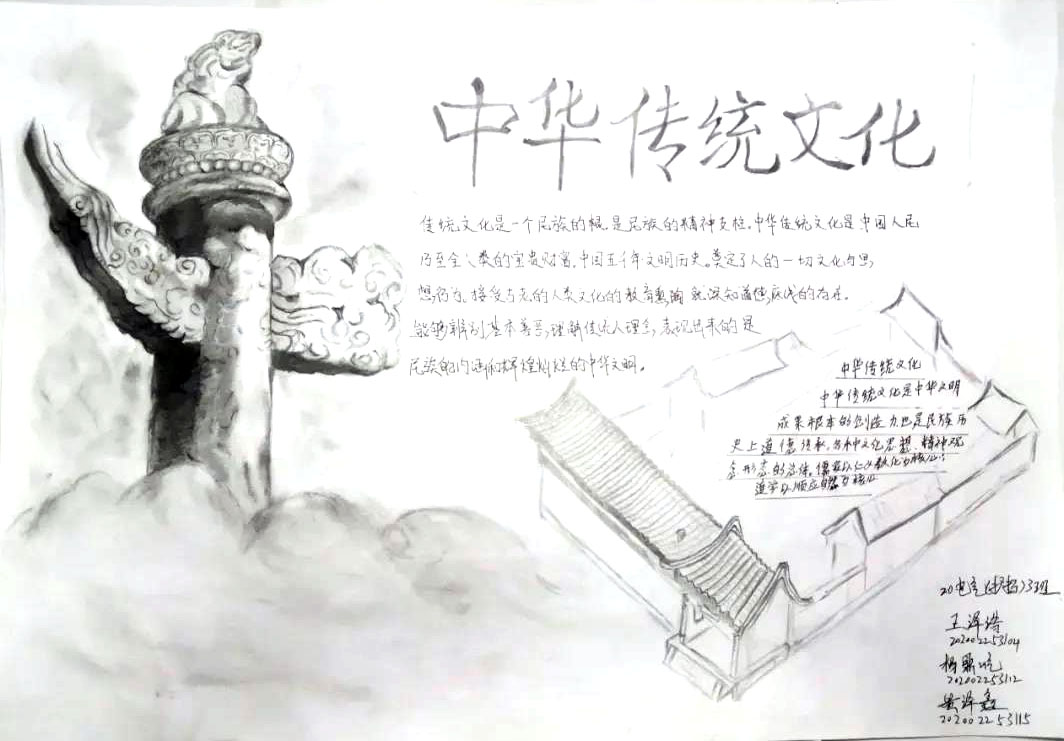 中华传统文化
传统文化是一个民族的根是民族的精神支柱。中华传统文化是中国人民
乃至全人类的宝贵财富,中国五千年文明历史。奠定了人的一切文化内思,
想,行为、接受古老的人类文化的教育 就深知道传统的存在。
能够辨别基本善恶,理解传统人理念,表现出来的是
民族的内涵和辉煌灿烂的中华文明。
中华传统文化
中华传统文化是中华文明
成果根本的创造力也是民族历
史上道德传承,各种文化思想、精神观
念形态的总体。儒家以仁义教化为核心;
道学以顺应自然为核心
20电气 3班
王泽
202002253104
杨
202002253112
泽鑫
202002253115